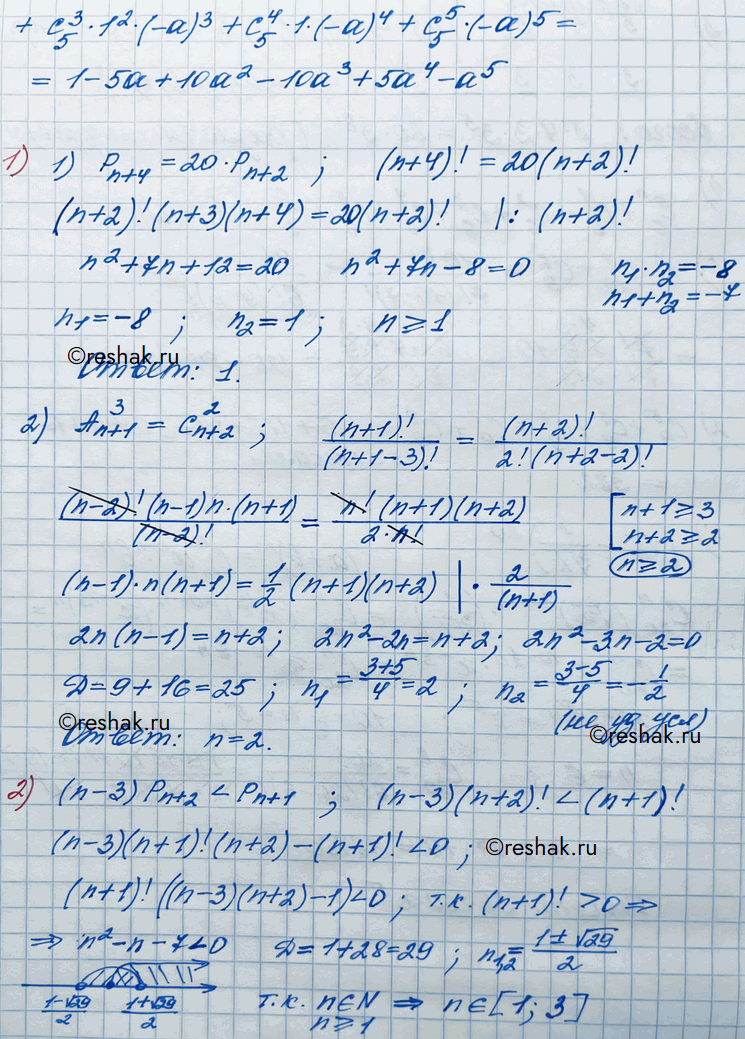 + C₅³·1²·(-a)³ + C₅⁴·1·(-a)⁴ + C₅⁵·(-a)⁵ =
= 1-5a+10a²-10a³+5a⁴-a⁵
1) 1) Pₙ₊₄ = 20·Pₙ₊₂ ; (n+4)! = 20(n+2)!
(n+2)!(n+3)(n+4) = 20(n+2)! |: (n+2)!
n²+7n+12=20 n²+7n-8=0 n₁·n₂=-8
n₁+n₂=-7
n₁=-8 ; n₂=1 ; n≥1
©reshak.ru
Ответ: 1.
2) A³ₙ₊₁ = C²ₙ₊₂ ; (n+1)!/(n+1-3)! = (n+2)!/2!(n+2-2)!
(n-2)!(n-1)n·(n+1)/(n-2)! = n!(n+1)(n+2)/2·n! [n+1≥3
n+2≥2
n≥2
(n-1)·n(n+1) = 1/2 (n+1)(n+2) | · 2/(n+1)
2n(n-1)=n+2; 2n²-2n=n+2; 2n²-3n-2=0
D=9+16=25 ; n₁ = (3+5)/4 = 2 ; n₂ = (3-5)/4 = -1/2
(не уд. усл)
©reshak.ru
©reshak.ru
Ответ: n=2.
2) (n-3)Pₙ₊₂ < Pₙ₊₁ ; (n-3)(n+2)! < (n+1)!
(n-3)(n+1)!(n+2)-(n+1)! <0 ; ©reshak.ru
(n+1)!((n-3)(n+2)-1)<0 ; т.к. (n+1)! >0 ⇒
⇒ n²-n-7<0 D=1+28=29 ; n₁,₂ = (1±√29)/2
(1-√29)/2 (1+√29)/2 т.к. n∈N ⇒ n∈[1; 3]
n≥1